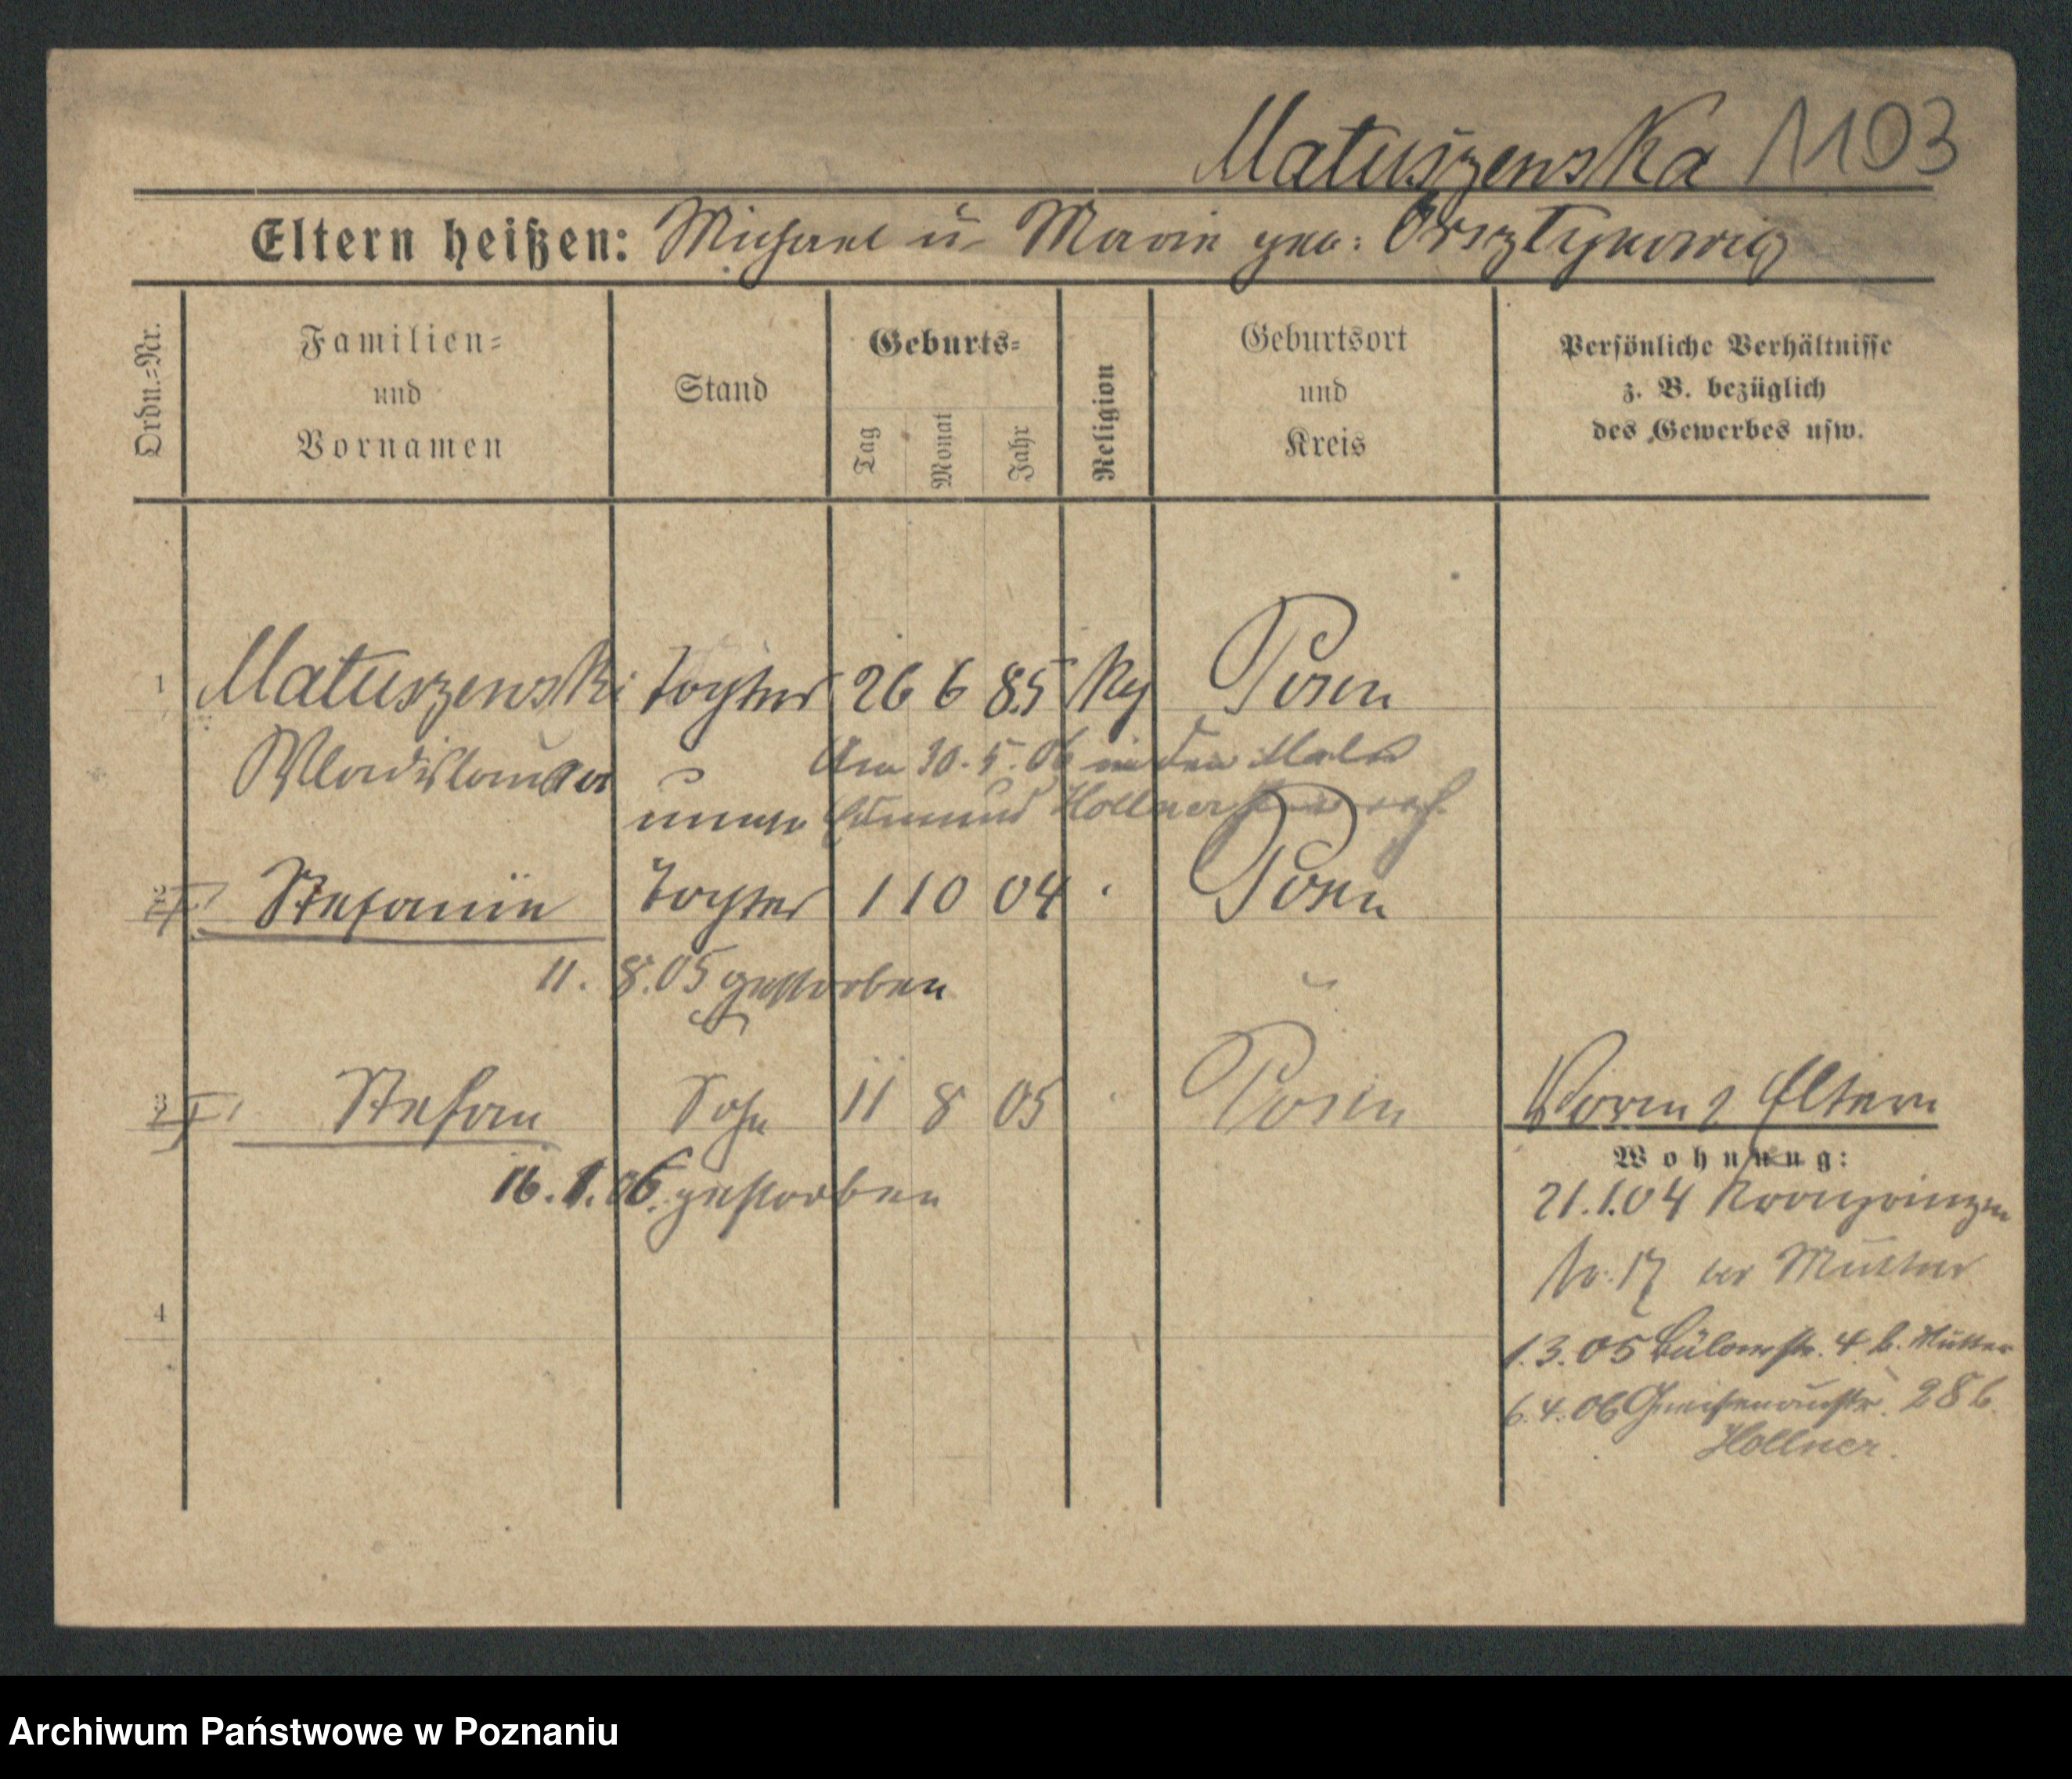 Matuszewska 1103
Eltern heißen: Michael u Marie geb:
Ordn.=Nr.
Familien=
und
Vornamen
Stand
Geburts=
Tag
Monat
Jahr
Religion
Geburtsort
und
Kreis
Persönliche Verhältnisse
z. B. bezüglich
des Gewerbes usw.
1 Matuszewski Tochter 26 6 85 Posen
Wladislawa Am 30.5.06 in den
Edmund Hollner
2 Stefanie Tochter 1 10 04 Posen
11. 8. 05 gestorben
3 Stefan Sohn 11 8 05 Posen Eltern
16. 1. 06. gestorben
Wohnung:
21.1.04 Kronprinzen
17 Mutter
4
1.3.05 Bülowstr. 4 b. Mutter
6.4.06 Gneisenaustr. 28 b.
Hollner.
Archiwum Państwowe w Poznaniu